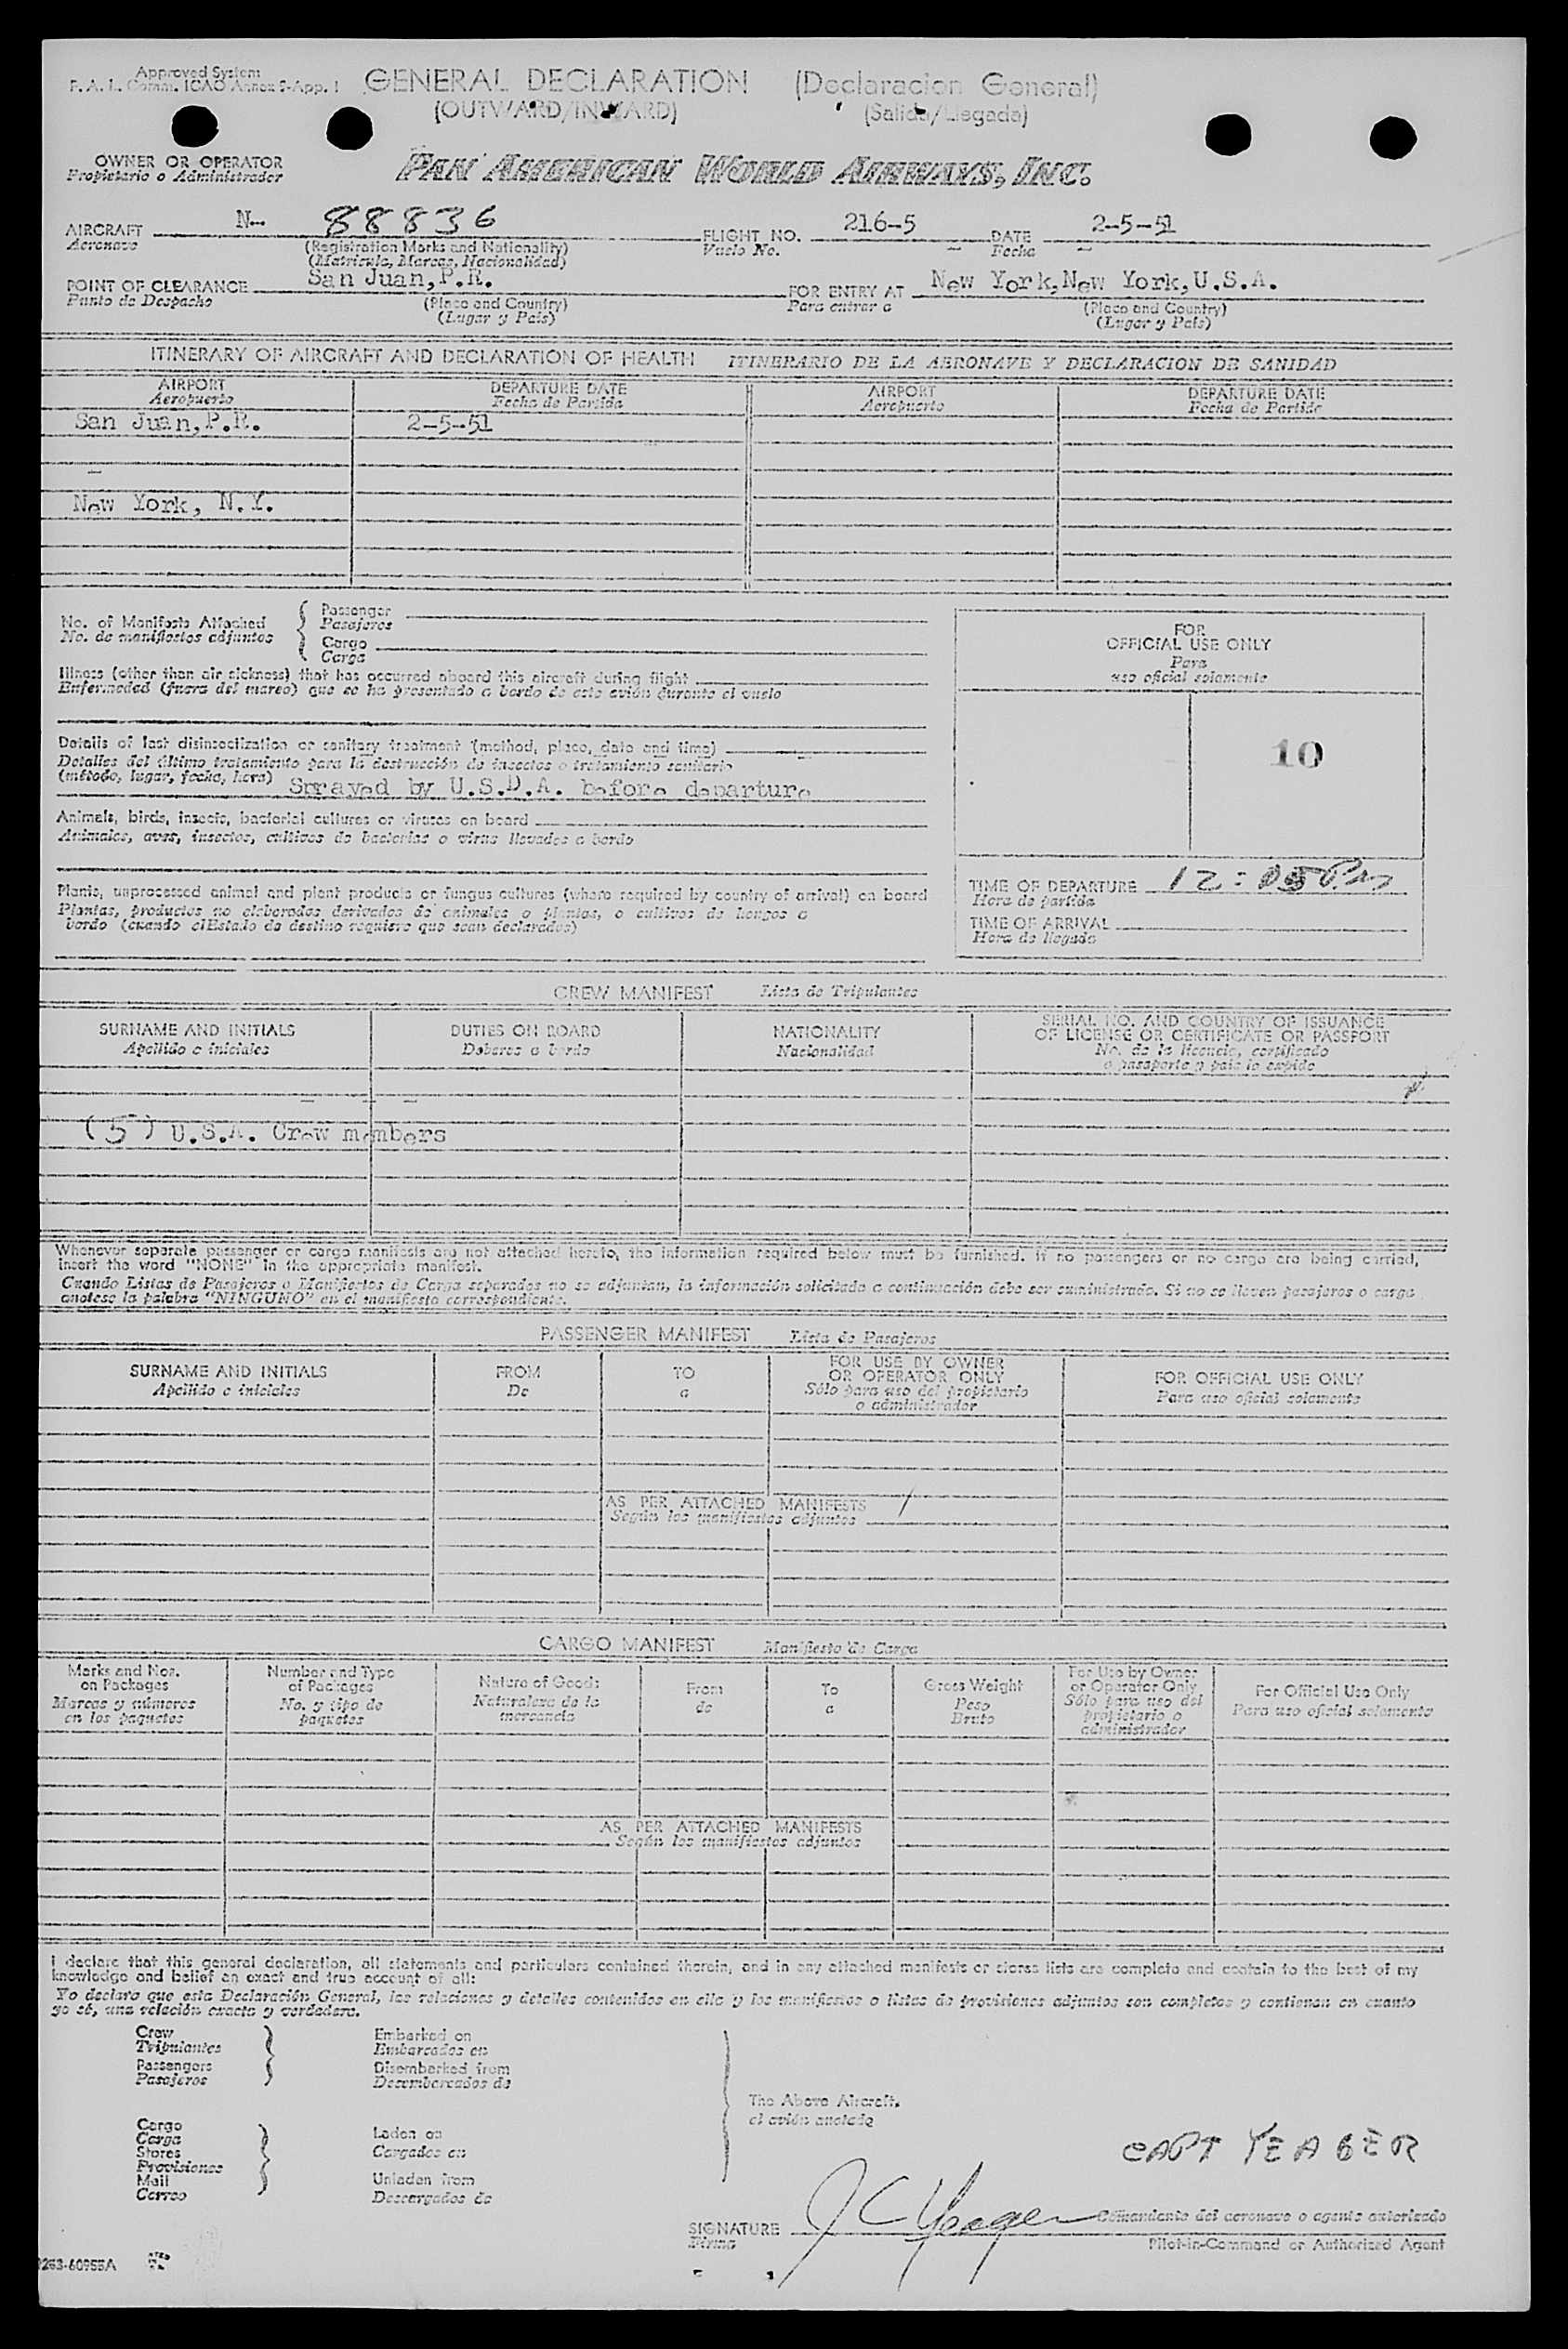 Approved System
F. A. L. Comm. ICAO Annex 9-App. 1
GENERAL DECLARATION (Declaracion General)
(OUTWARD/INWARD) (Salida/Llegada)
OWNER OR OPERATOR
Propietario o Administrador
PAN AMERICAN WORLD AIRWAYS, INC.
AIRCRAFT N- 88836 FLIGHT NO. 216-5 DATE 2-5-51
Aeronave (Registration Marks and Nationality) Vuelo No. Fecha
(Matricula, Marcas, Nacionalidad)
POINT OF CLEARANCE San Juan, P.R. FOR ENTRY AT New York, New York, U.S.A.
Punto de Despacho (Place and Country) Para entrar a (Place and Country)
(Lugar y Pais) (Lugar y Pais)
ITINERARY OF AIRCRAFT AND DECLARATION OF HEALTH ITINERARIO DE LA AERONAVE Y DECLARACION DE SANIDAD
AIRPORT DEPARTURE DATE AIRPORT DEPARTURE DATE
Aeropuerto Fecha de Partida Aeropuerto Fecha de Partida
San Juan, P.R. 2-5-51
New York, N.Y.
No. of Manifests Attached
No. de manifiestos adjuntos
Passenger
Pasajeros
Cargo
Carga
Illness (other than air sickness) that has occurred aboard this aircraft during flight
Enfermedad (fuera del mareo) que se ha presentado a bordo de este avión durante el vuelo
Details of last disinsectization or sanitary treatment (method, place, date and time)
Detalles del último tratamiento para la destrucción de insectos o tratamiento sanitario
(método, lugar, fecha, hora) Sprayed by U.S.D.A. before departure
Animals, birds, insects, bacterial cultures or viruses on board
Animales, aves, insectos, cultivos de bacterias o virus llevados a bordo
Plants, unprocessed animal and plant products or fungus cultures (where required by country of arrival) on board
Plantas, productos no elaborados derivados de animales o plantas, o cultivos de hongos a
bordo (cuando el Estado de destino requiere que sean declarados)
FOR
OFFICIAL USE ONLY
Para
uso oficial solamente
10
TIME OF DEPARTURE 12:05 Pm
Hora de partida
TIME OF ARRIVAL
Hora de llegada
CREW MANIFEST Lista de Tripulantes
SURNAME AND INITIALS DUTIES ON BOARD NATIONALITY SERIAL NO. AND COUNTRY OF ISSUANCE
OF LICENSE OR CERTIFICATE OR PASSPORT
Apellido e iniciales Deberes a bordo Nacionalidad No. de la licencia, certificado
o pasaporte y pais lo expide
(5) U.S.A. Crew members
Whenever separate passenger or cargo manifests are not attached hereto, the information required below must be furnished. If no passengers or no cargo are being carried,
insert the word "NONE" in the appropriate manifest.
Cuando Listas de Pasajeros o Manifiestos de Carga separados no se adjuntan, la información solicitada a continuación debe ser suministrada. Si no se llevan pasajeros o carga
anotese la palabra "NINGUNO" en el manifiesto correspondiente.
PASSENGER MANIFEST Lista de Pasajeros
SURNAME AND INITIALS FROM TO FOR USE BY OWNER
OR OPERATOR ONLY FOR OFFICIAL USE ONLY
Apellido e iniciales De a Sólo para uso del propietario
o administrador Para uso oficial solamente
AS PER ATTACHED MANIFESTS /
Según los manifiestos adjuntos
CARGO MANIFEST Manifiesto de Carga
Marks and Nos.
on Packages
Marcas y números
en los paquetes
Number and Type
of Packages
No. y tipo de
paquetes
Nature of Goods
Naturaleza de la
mercancia
From
de
To
a
Gross Weight
Peso
Bruto
For Use by Owner
or Operator Only
Sólo para uso del
propietario o
administrador
For Official Use Only
Para uso oficial solamente
AS PER ATTACHED MANIFESTS
Según los manifiestos adjuntos
I declare that this general declaration, all statements and particulars contained therein, and in any attached manifests or stores lists are complete and contain to the best of my
knowledge and belief an exact and true account of all:
Yo declaro que esta Declaración General, las relaciones y detalles contenidos en ella y los manifiestos o listas de provisiones adjuntos son completos y contienen en cuanto
yo sé, una relación exacta y verdadera.
Crew
Tripulantes
Passengers
Pasajeros
Embarked on
Embarcados en
Disembarked from
Desembarcados de
Cargo
Carga
Stores
Provisiones
Mail
Correo
Laden on
Cargados en
Unladen from
Descargados de
The Above Aircraft.
el avión anotado
CAPT YEAGER
SIGNATURE J C Yeager Comandante del aeronave o agente autorizado
Firma Pilot-in-Command or Authorized Agent